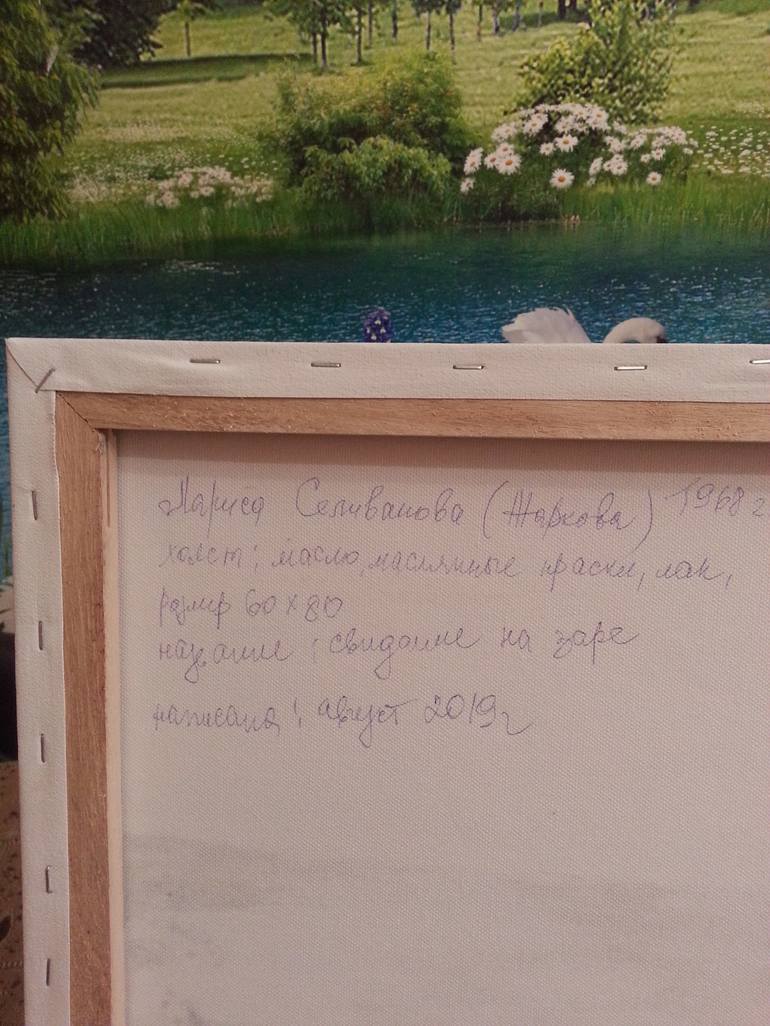 Лариса Селиванова (Жаркова) 1968 г.
холст; масло, маслянные краски, лак,
размер 60 х 80
название: свидание на заре
написана: август 2019г